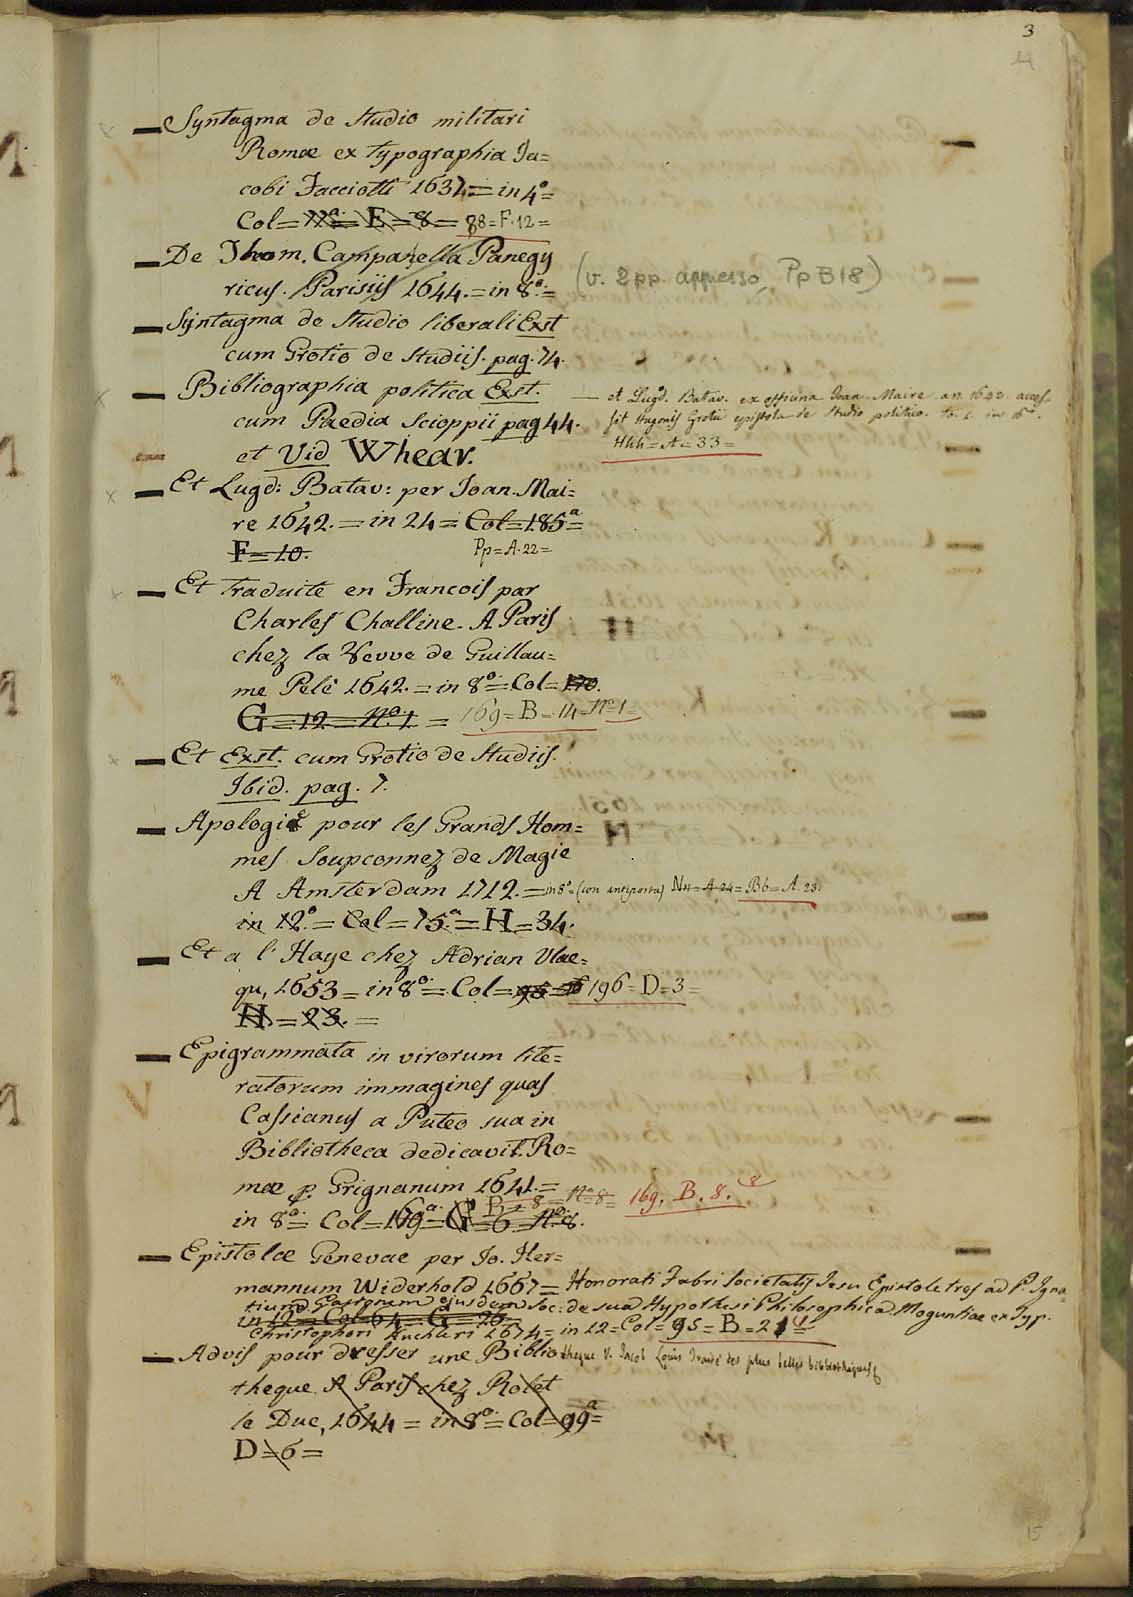 3
14
Syntagma de Studio militari
Romæ ex typographia Ja=
cobi Facciotti 1637 = in 4º =
Col = = E = 8 = 88 = F. 12 =
De Thom. Campanella Panegy
ricus. Parisiis 1644. = in 8º =
(v. 2 pp. appresso, Pp B 18)
Syntagma de Studio liberali Exst
cum Grotio de Studiis. pag. 74.
Bibliographia politica Exst.
cum Paedia Scioppii pag 44.
et Vid Whear.
— et Lugd. Batav. ex officina Joan. Maire an 1642. acces=
sit Hugonis Grotii epistola de Studio politico. to. 1. in 16º.
Hhh = A = 33 =
Et Lugd: Batav: per Joan. Mai=
re 1642. = in 24 = Col = 185ª =
F = 10. Pp = A. 22 =
Et traduite en Francois par
Charles Challine. A Paris
chez la Veuve de Guillau=
me Pelé 1642. = in 8º = Col = 170.
G = 12 = Nº. 1. = 169 = B = 14 = Nº 1 =
Et Exst. cum Grotio de Studiis.
Ibid. pag. 7.
Apologie pour les Grands Hom=
mes Soupconnez de Magie
A Amsterdam 1712. = in 8º = (con antiporta) Nn = A. 24 = Bb = A. 23.
in 12º = Col = 75ª = H = 34.
Et a l'Haye chez Adrian Vlac=
qu, 1653 = in 8º = Col = 95 = 196 = D = 3 =
H = 23. =
Epigrammata in virorum lite=
ratorum immagines quas
Cassianus a Puteo sua in
Bibliotheca dedicavit. Ro=
mæ p. Grignanum 1641. =
B = 8 = Nº 8 = 169. B. 8. 8
in 8º = Col = 169ª = G = 6 = Nº 8.
Epistolæ Genevae per Jo. Her=
mannum Widerhold 1667 = Honorati Fabri Societatis Jesu Epistole tres ad P. Igna=
tium Gastonum ejusdem Soc: de sua Hypothesi Philosophica Moguntiae ex Typ.
in 12 = Col = 64 = G = 26 =
Christophori Kuchleri 1674 = in 12 = Col = 95 = B = 21
Advis pour dresser une Biblio theque v. Jacob Louis Traité des plus belles bibliotheques
theque A Paris chez Rolet
le Duc, 1644 = in 8º = Col = 99ª =
D = 6 =
15